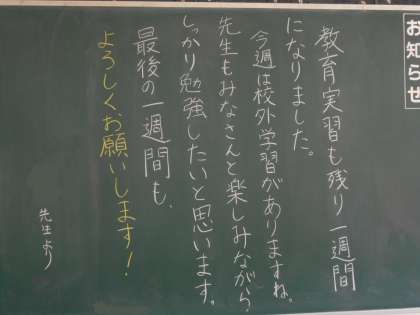 お知らせ
教育実習も残り一週間
になりました。
今週は校外学習がありますね。
先生もみなさんと楽しみながら、
しっかり勉強したいと思います。
最後の一週間も、
よろしくお願いします!
先生より